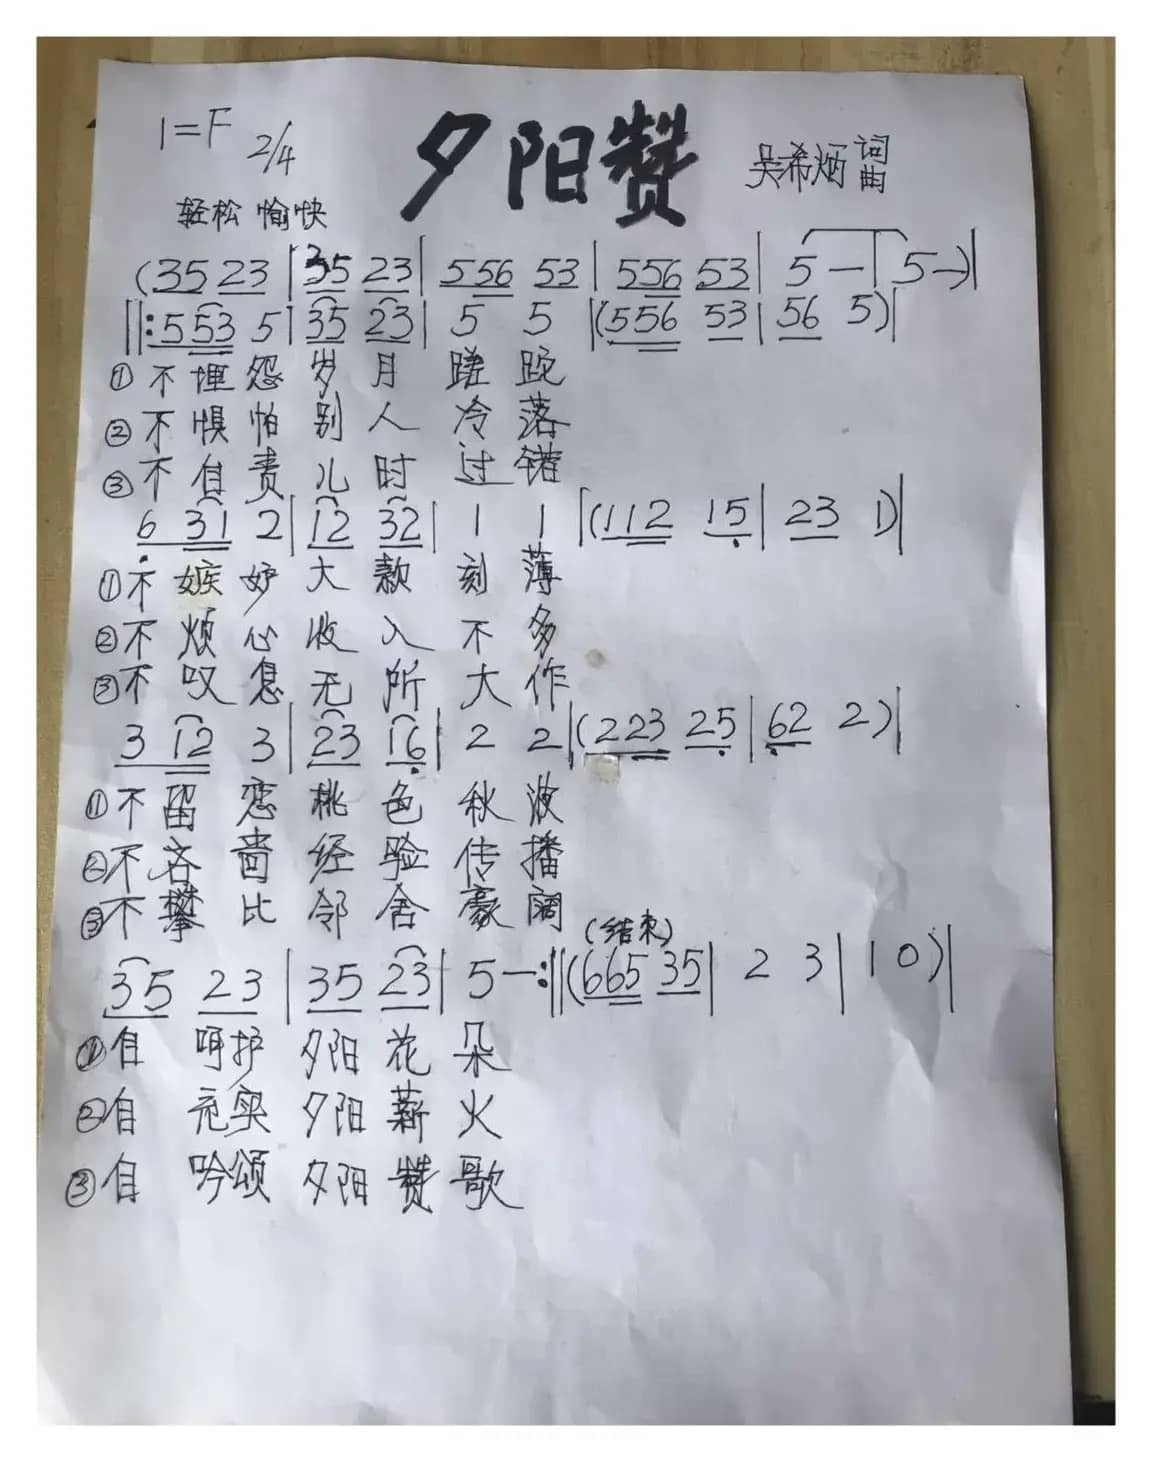 1=F 2/4 夕阳赞 吴希炳 词曲
轻松 愉快
(35 23 | 35 23 | 556 53 | 556 53 | 5 — | 5 —)|
||: 553 5 | 35 23 | 5 5 |(556 53 | 56 5)|
① 不埋怨岁月蹉跎
② 不惧怕别人冷落
③ 不自责儿时过错
6 31 2 | 12 32 | 1 1 |(112 15 | 23 1)|
① 不嫉妒大款刻薄
② 不烦心收入不多
③ 不叹息无所大作
3 12 3 | 23 16 | 2 2 |(223 25 | 62 2)|
① 不留恋桃色秋波
② 不吝啬经验传播
③ 不攀比邻舍豪阔
(结束)
35 23 | 35 23 | 5 — :||(665 35 | 2 3 | 1 0)|
① 自 呵护 夕阳花朵
② 自 充实 夕阳薪火
③ 自 吟颂 夕阳赞歌